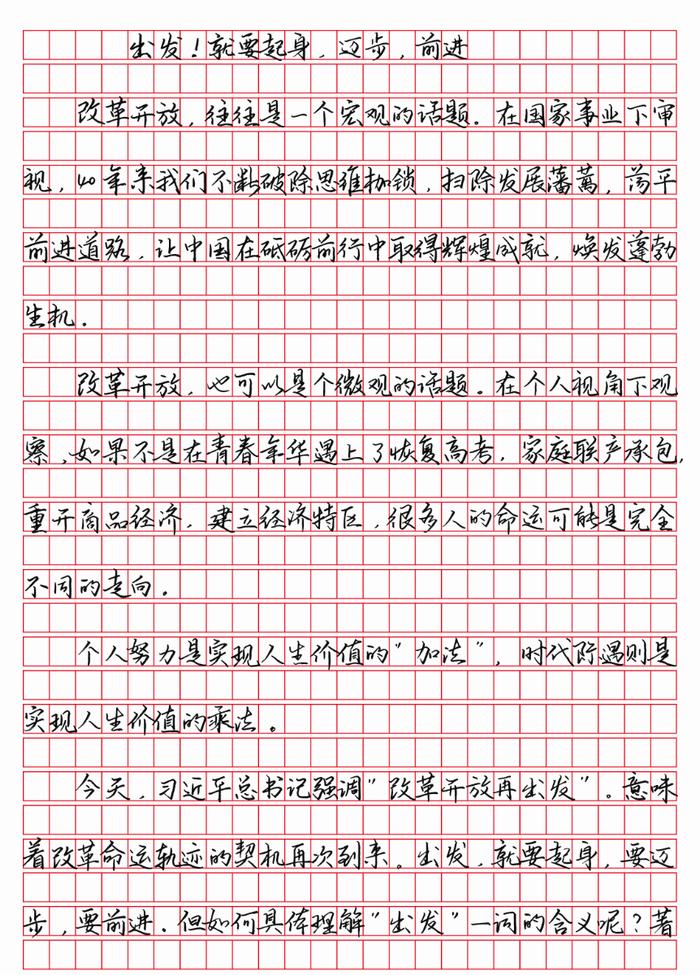 出发！就要起身，迈步，前进
改革开放，往往是一个宏观的话题。在国家事业下审
视，40年来我们不断破除思维枷锁，扫除发展藩篱，荡平
前进道路，让中国在砥砺前行中取得辉煌成就，焕发蓬勃
生机。
改革开放，也可以是个微观的话题。在个人视角下观
察，如果不是在青春年华遇上了恢复高考，家庭联产承包，
重开商品经济，建立经济特区，很多人的命运可能是完全
不同的走向。
个人努力是实现人生价值的“加法”，时代际遇则是
实现人生价值的乘法。
今天，习近平总书记强调“改革开放再出发”。意味
着改革命运轨迹的契机再次到来。出发，就要起身，要迈
步，要前进。但如何具体理解“出发”一词的含义呢？著